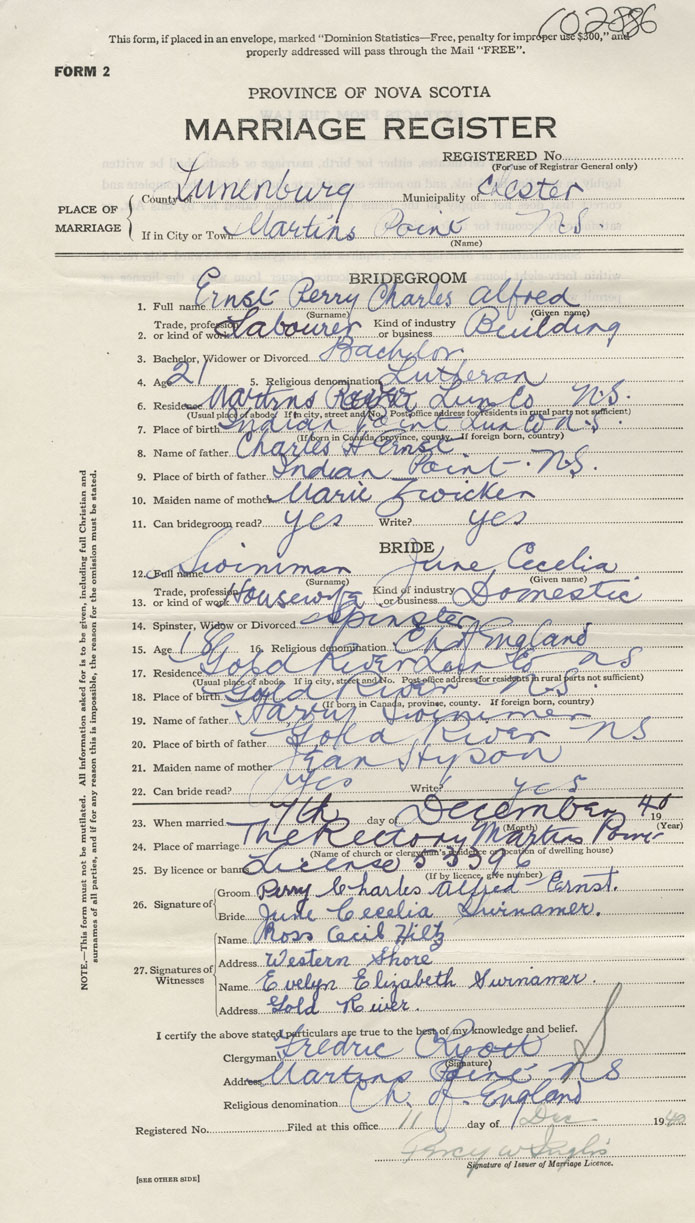 102886
This form, if placed in an envelope, marked "Dominion Statistics—Free, penalty for improper use $300," and
properly addressed will pass through the Mail "FREE".
FORM 2
PROVINCE OF NOVA SCOTIA
MARRIAGE REGISTER
REGISTERED No.
(For use of Registrar General only)
PLACE OF MARRIAGE
County of Lunenburg Municipality of Chester
If in City or Town Martins Point N.S.
(Name)
BRIDEGROOM
1. Full name Ernst Perry Charles Alfred
(Surname) (Given name)
2. Trade, profession or kind of work Labourer Kind of industry or business Building
3. Bachelor, Widower or Divorced Bachelor
4. Age 21 5. Religious denomination Lutheran
6. Residence Martins River Lun Co N.S.
(Usual place of abode. If in city, street and No. Post office address for residents in rural parts not sufficient)
7. Place of birth Indian Point Lun Co N.S.
(If born in Canada, province, county. If foreign born, country)
8. Name of father Charles H Ernst
9. Place of birth of father Indian Point. N.S.
10. Maiden name of mother Marie Zwicker
11. Can bridegroom read? yes Write? yes
BRIDE
12. Full name Swiniman June Cecelia
(Surname) (Given name)
13. Trade, profession or kind of work Housewife Kind of industry or business Domestic
14. Spinster, Widow or Divorced Spinster
15. Age 18 16. Religious denomination Ch of England
17. Residence Gold River Lun Co NS
(Usual place of abode. If in city, street and No. Post office address for residents in rural parts not sufficient)
18. Place of birth Gold River N.S.
(If born in Canada, province, county. If foreign born, country)
19. Name of father Harvy Swinimer
20. Place of birth of father Gold River NS
21. Maiden name of mother Jean Hyson
22. Can bride read? Yes Write? yes
23. When married 7th day of December 1940
(Month) (Year)
24. Place of marriage The Rectory Martins Point
(Name of church or clergyman's residence or location of dwelling house)
25. By licence or banns License 53396
(If by licence, give number)
26. Signature of
Groom Perry Charles Alfred Ernst.
Bride June Cecelia Swinamer.
27. Signatures of Witnesses
Name Ross Cecil Hiltz
Address Western Shore
Name Evelyn Elizabeth Swinamer.
Address Gold River.
I certify the above stated particulars are true to the best of my knowledge and belief.
Clergyman Fredric
(Signature)
Address Martins Point NS
Religious denomination Ch. of England
Registered No. Filed at this office 11 day of Dec 1940
Percy W
Signature of Issuer of Marriage Licence.
[SEE OTHER SIDE]
NOTE.—This form must not be mutilated. All information asked for is to be given, including full Christian and
surnames of all parties, and if for any reason this is impossible, the reason for the omission must be stated.